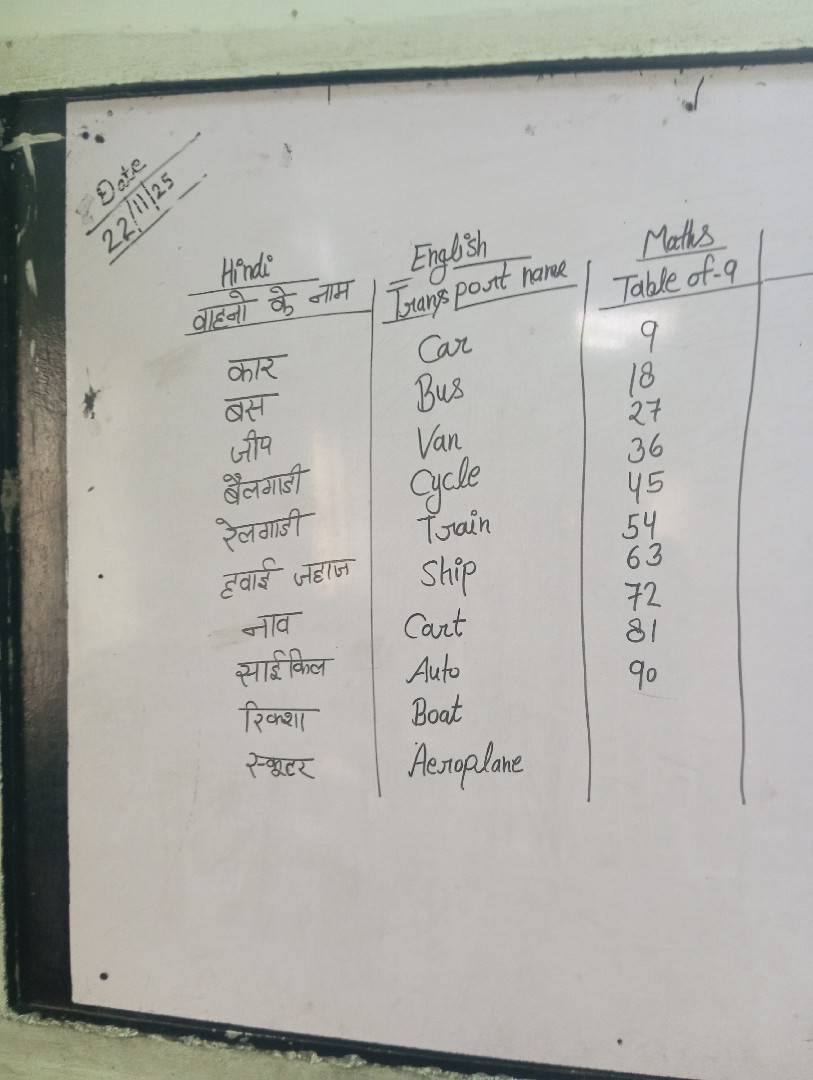 Date
22/11/25
Hindi
वाहनो के नाम
कार
बस
जीप
बैलगाडी
रेलगाडी
हवाई जहाज
नाव
साईकिल
रिक्शा
स्कूटर
English
Transport name
Car
Bus
Van
Cycle
Train
Ship
Cart
Auto
Boat
Aeroplane
Maths
Table of-9
9
18
27
36
45
54
63
72
81
90